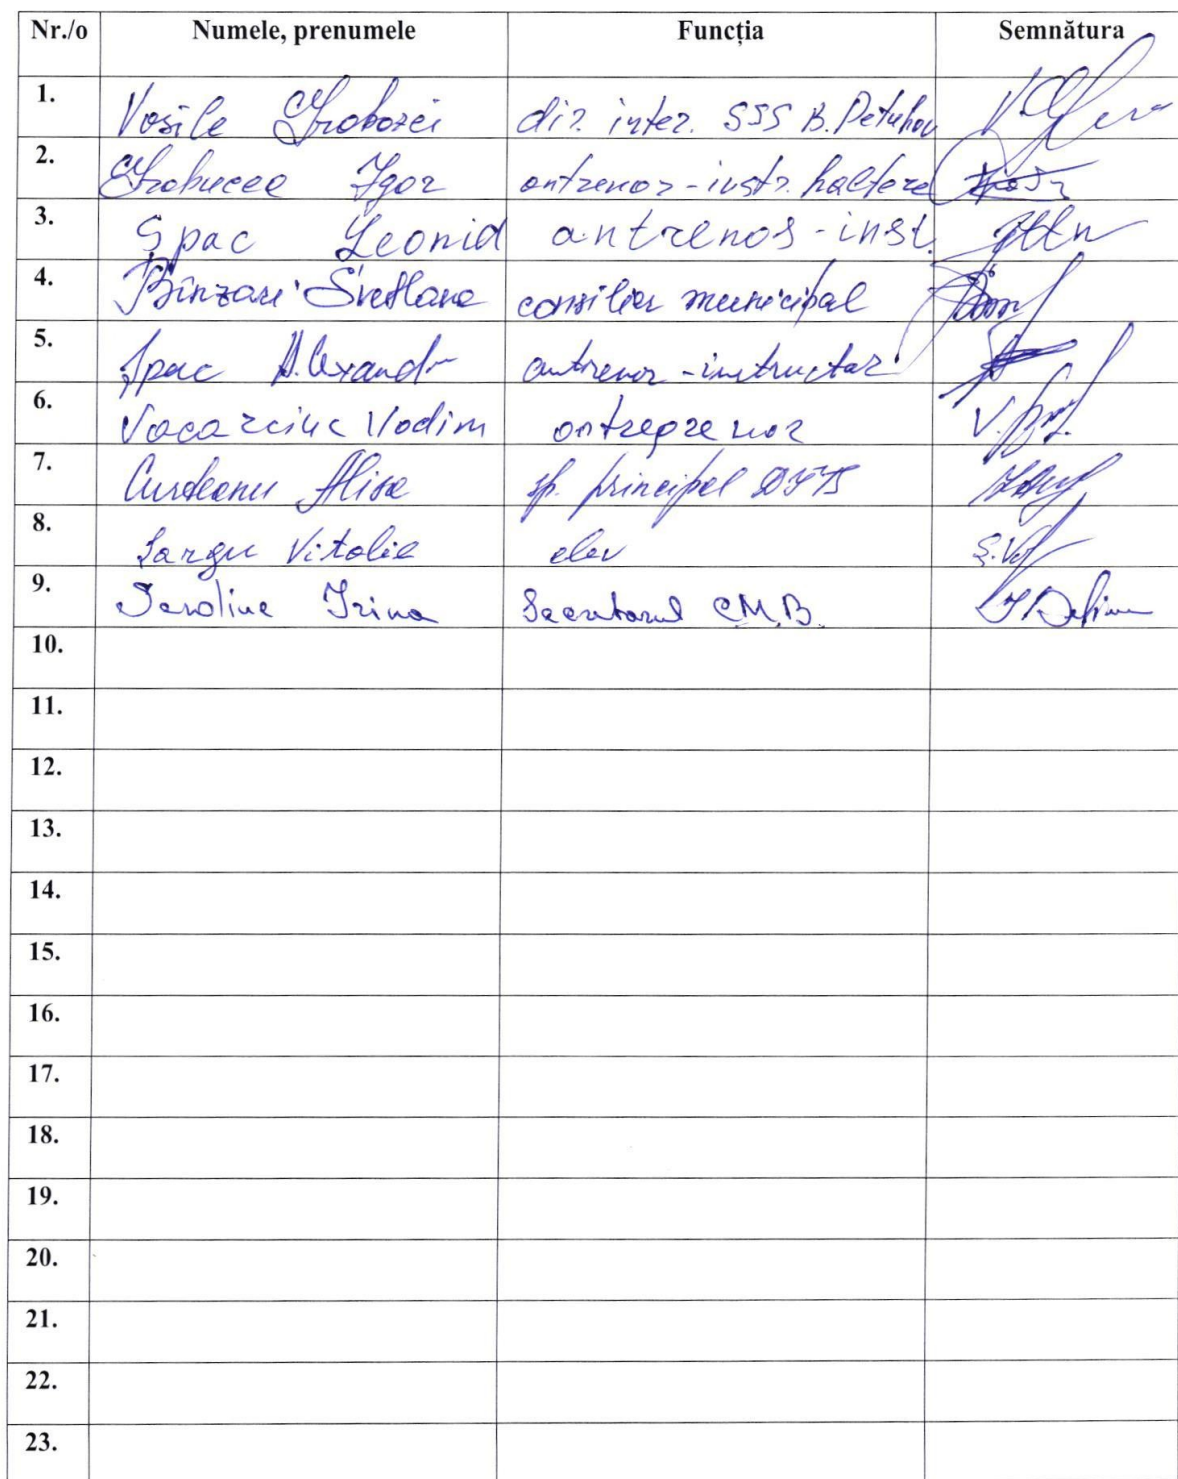 Nr./o Numele, prenumele Funcția Semnătura
1. Vasile dir. inter. SSS B. Petuhov
2. Igor antrenor-instr. haltere
3. Spac Leonid antrenor-inst.
4. Bînzari Svetlana consilier municipal
5. Spac Alexandr antrenor-instructor
6. Vacarciuc Vadim antreprenor
7. Curdeanu Alisa sp. principal
8. Sargu Vitalie elev
9. Irina Secretarul C.M.B.
10.
11.
12.
13.
14.
15.
16.
17.
18.
19.
20.
21.
22.
23.